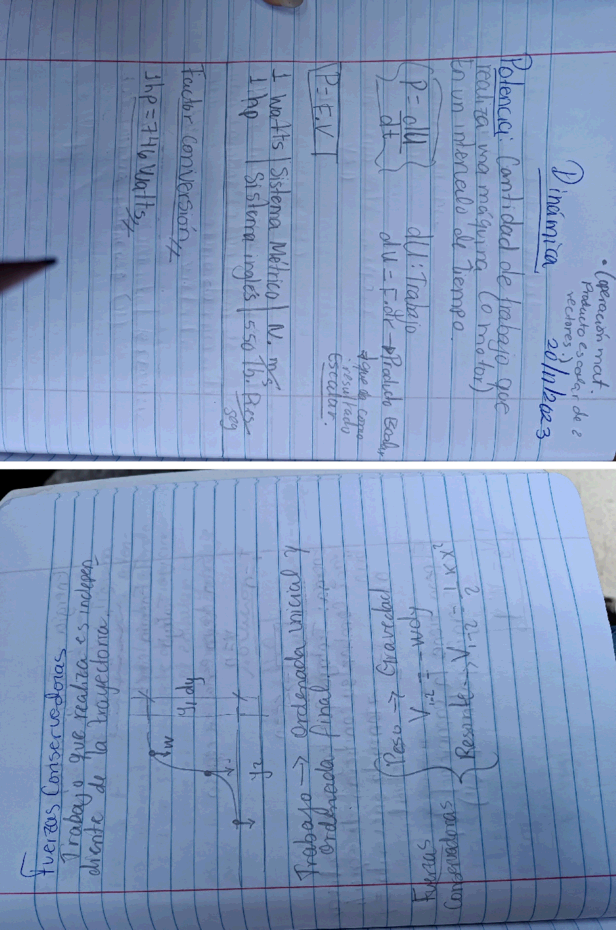 • (operación mat.
Producto escalar de 2
vectores)
Dinámica 20/11/2023
Potencia: Cantidad de trabajo que
realiza una máquina (o motor)
en un intervalo de tiempo.
P = dU/dt dU: Trabajo
dU = F.dr → Producto Escalar
resultado
Escalar.
P = F.V
1 Watts | Sistema Métrico | N. m/s
1 hp | Sistema inglés | 550 lb. Pies/seg
Factor Conversión
1hp = 746 Watts
Fuerzas Conservadoras
Trabajo que realiza es indepen-
diente de la trayectoria.
W
y1 dy
y2
Trabajo → ordenada inicial y
ordenada final.
Fuerzas
Conservadoras
Peso → Gravedad
V1-2 = -wdy
Resorte → V1-2 = -1/2 K X²